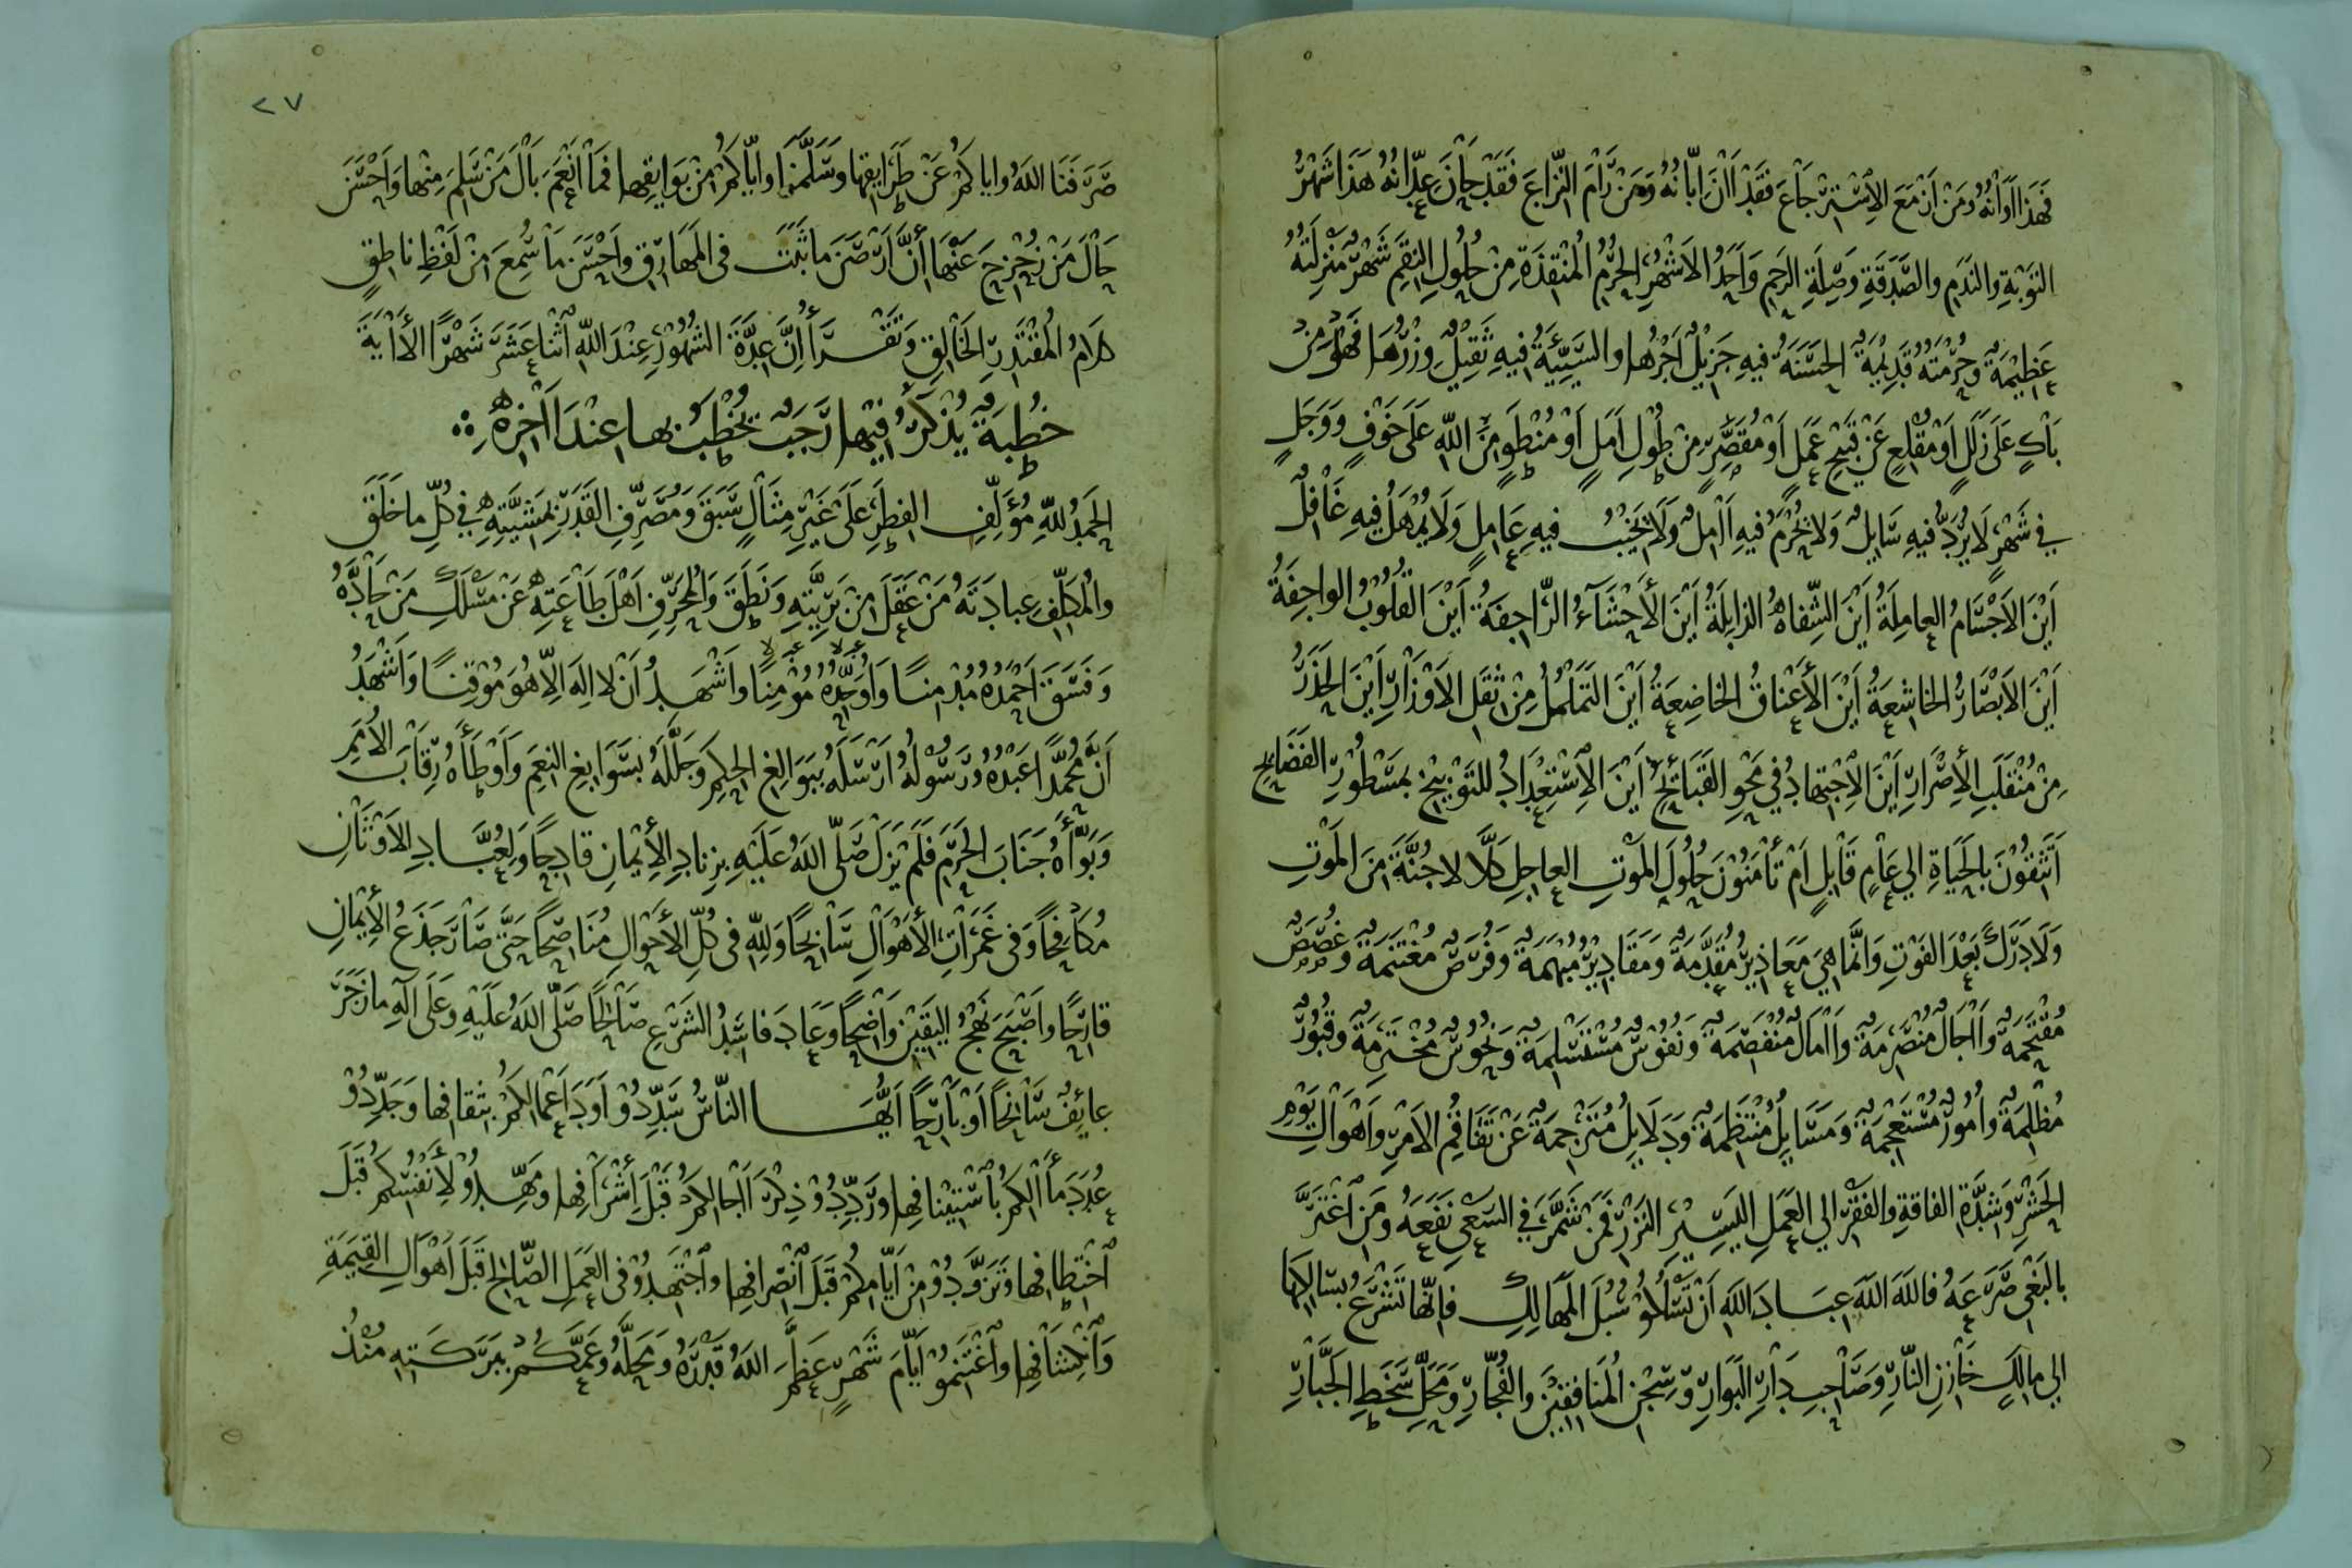 فَهَذَا أَوَانُهُ وَمَنْ أَزْمَعَ الِاسْتِرْجَاعَ فَقَدْ آنَ إِبَّانُهُ وَمَنْ رَامَ النِّزَاعَ فَقَدْ حَانَ عِدَّانُهُ هَذَا شَهْرُ
التَّوْبَةِ وَالنَّدَمِ وَالصَّدَقَةِ وَصِلَةِ الرَّحِمِ وَأَحَدُ الْأَشْهُرِ الْحُرُمِ الْمُنْقِذَةِ مِنْ حُلُولِ النِّقَمِ شَهْرٌ مَنْزِلَتُهُ
عَظِيمَةٌ وَحُرْمَتُهُ قَدِيمَةٌ الْحَسَنَةُ فِيهِ جَزِيلٌ أَجْرُهَا وَالسَّيِّئَةُ فِيهِ ثَقِيلٌ وِزْرُهَا فَهَلْ مِنْ
بَاكٍ عَلَى زَلَلٍ أَوْ مُقْلِعٍ عَنْ قَبِيحِ عَمَلٍ أَوْ مُقَصِّرٍ مِنْ طُولِ أَمَلٍ أَوْ مُنْطَوٍ مِنَ اللّٰهِ عَلَى خَوْفٍ وَوَجَلٍ
فِي شَهْرٍ لَا يُرَدُّ فِيهِ سَايِلٌ وَلَا يُحْرَمُ فِيهِ آمِلٌ وَلَا يَخِيبُ فِيهِ عَامِلٌ وَلَا يُمْهَلُ فِيهِ غَافِلٌ
أَيْنَ الْأَجْسَامُ الْعَامِلَةُ أَيْنَ الشِّفَاهُ الذَّابِلَةُ أَيْنَ الْأَحْشَاءُ الرَّاجِفَةُ أَيْنَ الْقُلُوبُ الْوَاجِفَةُ
أَيْنَ الْأَبْصَارُ الْخَاشِعَةُ أَيْنَ الْأَعْنَاقُ الْخَاضِعَةُ أَيْنَ التَّمَلْمُلُ مِنْ ثِقَلِ الْأَوْزَارِ أَيْنَ الْحَذَرُ
مِنْ مُنْقَلَبِ الْإِصْرَارِ أَيْنَ الِاجْتِهَادُ فِي مَحْوِ الْقَبَائِحِ أَيْنَ الِاسْتِعْدَادُ لِلتَّوْبِيخِ بِمَسْطُورِ الْفَضَايِحِ
أَتَثِقُونَ بِالْحَيَاةِ إِلَى عَامٍ قَابِلٍ أَمْ تَأْمَنُونَ حُلُولَ الْمَوْتِ الْعَاجِلِ كَلَّا لَا جُنَّةَ مِنَ الْمَوْتِ
وَلَا دَرَكَ بَعْدَ الْفَوْتِ وَإِنَّمَا هِيَ مَعَاذِيرُ مُقَدَّمَةٌ وَمَقَادِيرُ مُبْهَمَةٌ وَفُرَصٌ مُغْتَنَمَةٌ وَغُصَصٌ
مُقْتَحَمَةٌ وَآجَالٌ مُنْصَرِمَةٌ وَآمَالٌ مُنْفَصِمَةٌ وَنُفُوسٌ مُسْتَسْلِمَةٌ وَنُحُوسٌ مُخْتَرِمَةٌ وَقُبُورٌ
مُظْلِمَةٌ وَأُمُورٌ مُسْتَعْجِمَةٌ وَمَسَايِلُ مُنْتَظِمَةٌ وَدَلَايِلُ مُتَرْجِمَةٌ عَنْ تَفَاقُمِ الْأَمْرِ وَأَهْوَالِ يَوْمِ
الْحَشْرِ وَشِدَّةِ الْفَاقَةِ وَالْفَقْرِ إِلَى الْعَمَلِ الْيَسِيرِ النَّزْرِ فَمَنْ تَشَمَّرَ فِي السَّعْيِ نَفَعَهُ وَمَنِ اغْتَرَّ
بِالْبَغْيِ صَرَعَهُ فَاللّٰهَ اللّٰهَ عِبَادَ اللّٰهِ أَنْ تَسْلُكُوا سُبُلَ الْمَهَالِكِ فَإِنَّهَا تَشْرَعُ بِسَالِكِهَا
إِلَى مَالِكٍ خَازِنِ النَّارِ وَصَاحِبِ دَارِ الْبَوَارِ وَسِجْنِ الْمُنَافِقِينَ وَالْفُجَّارِ وَمَحَلِّ سَخَطِ الْجَبَّارِ
٢٧
صَرَفَنَا اللّٰهُ وَإِيَّاكُمْ عَنْ طَرَايِقِهَا وَسَلَّمَنَا وَإِيَّاكُمْ مِنْ بَوَايِقِهَا فَمَا أَنْعَمَ بَالَ مَنْ سَلِمَ مِنْهَا وَأَحْسَنَ
حَالَ مَنْ زُحْزِحَ عَنْهَا إِنَّ أَرْصَنَ مَا ثَبَتَ فِي الْمَهَارِقِ وَأَحْسَنَ مَا سُمِعَ مِنْ لَفْظِ نَاطِقٍ
كَلَامُ الْمُقْتَدِرِ الْخَالِقِ وَتَقْرَأُ إِنَّ عِدَّةَ الشُّهُورِ عِنْدَ اللّٰهِ اثْنَا عَشَرَ شَهْرًا الْآيَةَ
خُطْبَةٌ يُذْكَرُ فِيهَا رَجَبٌ يُخْطَبُ بِهَا عِنْدَ آخِرِهِ
الْحَمْدُ لِلّٰهِ مُؤَلِّفِ الْفِطَرِ عَلَى غَيْرِ مِثَالٍ سَبَقَ وَمُصَرِّفِ الْقَدَرِ بِمَشِيَّتِهِ فِي كُلِّ مَا خَلَقَ
وَالْمُكَلِّفِ عِبَادَتَهُ مَنْ عَقَلَ مِنْ بَرِيَّتِهِ وَنَطَقَ وَالْمُحَرِّفِ أَهْلَ طَاعَتِهِ عَنْ مَسْلَكِ مَنْ حَادَّهُ
وَفَسَقَ أَحْمَدُهُ مُدْمِنًا وَأُوَحِّدُهُ مُؤْمِنًا وَأَشْهَدُ أَنْ لَا إِلَهَ إِلَّا هُوَ مُوقِنًا وَأَشْهَدُ
أَنَّ مُحَمَّدًا عَبْدُهُ وَرَسُولُهُ أَرْسَلَهُ بِبَوَالِغِ الْحِكَمِ وَجَلَّلَهُ بِسَوَابِغِ النِّعَمِ وَأَوْطَأَهُ رِقَابَ الْأُمَمِ
وَبَوَّأَهُ جَنَابَ الْحَرَمِ فَلَمْ يَزَلْ صَلَّى اللّٰهُ عَلَيْهِ بِزِنَادِ الْإِيمَانِ قَادِحًا وَلِعُبَّادِ الْأَوْثَانِ
مُكَافِحًا وَفِي غَمَرَاتِ الْأَهْوَالِ سَابِحًا وَلِلّٰهِ فِي كُلِّ الْأَحْوَالِ مُنَاصِحًا حَتَّى صَارَ جَذَعُ الْإِيمَانِ
قَارِحًا وَأَصْبَحَ نَهْجُ الْيَقِينِ وَاضِحًا وَعَادَ فَاسِدُ الشَّرْعِ صَالِحًا صَلَّى اللّٰهُ عَلَيْهِ وَعَلَى آلِهِ مَا زَجَرَ
عَايِفٌ سَانِحًا أَوْ بَارِحًا أَيُّهَا النَّاسُ سَدِّدُوا أَوَدَ أَعْمَالِكُمْ بِثِقَافِهَا وَجَدِّدُوا
عُدَدَ مَآلِكُمْ بِاسْتِينَافِهَا وَرَدِّدُوا ذِكْرَ آجَالِكُمْ قَبْلَ إِشْرَافِهَا وَمَهِّدُوا لِأَنْفُسِكُمْ قَبْلَ
اخْتِطَافِهَا وَتَزَوَّدُوا مِنْ أَيَّامِكُمْ قَبْلَ انْصِرَافِهَا وَاجْتَهِدُوا فِي الْعَمَلِ الصَّالِحِ قَبْلَ أَهْوَالِ الْقِيٰمَةِ
وَانْكِشَافِهَا وَاغْتَنِمُوا أَيَّامَ شَهْرٍ عَظَّمَ اللّٰهُ قَدْرَهُ وَمَحَلَّهُ وَعَمَّكُمْ بِبَرَكَتِهِ مُنْذُ